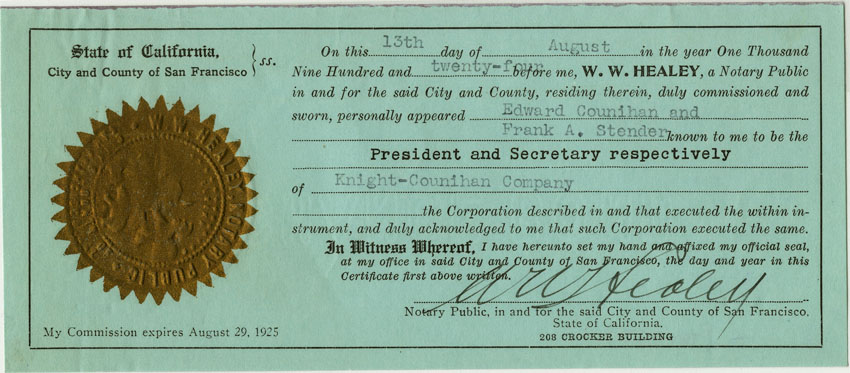 State of California,
City and County of San Francisco } ss.
On this 13th day of August in the year One Thousand
Nine Hundred and twenty-four before me, W. W. HEALEY, a Notary Public
in and for the said City and County, residing therein, duly commissioned and
sworn, personally appeared Edward Counihan and
Frank A. Stender known to me to be the
President and Secretary respectively
of Knight-Counihan Company
the Corporation described in and that executed the within in-
strument, and duly acknowledged to me that such Corporation executed the same.
In Witness Whereof, I have hereunto set my hand and affixed my official seal,
at my office in said City and County of San Francisco, the day and year in this
Certificate first above written.
W W Healey
Notary Public, in and for the said City and County of San Francisco,
State of California.
208 CROCKER BUILDING
W. W. HEALEY, NOTARY PUBLIC
My Commission expires August 29, 1925